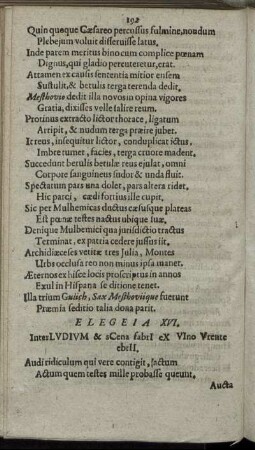 192
Quin quoque Cæsareo percussus fulmine, nondum
Plebejum voluit disseruisse latus,
Inde parem meritus bino cum complice pœnam
Dignus, qui gladio pereuteretur, erat.
Attamen ex causis sententia mitior ensem
Sustulit, & betulis terga terenda dedit.
Meshovio dedit illa novisus opina vigores
Gratia, dixisses velle salire reum.
Protinus extracto lictor thorace, ligatum
Arripit, & nudum terga præire jubet.
It reus, insequitur lictor, conduplicat ictus,
Imbre tumer, facies, terga cruore madent.
Succedunt betulis betulæ reus ejulat, omni
Corpore sanguineus sudor & unda fluit.
Spectatum pars una dolet, pars altera ridet.
Hic parci, cædi fortius ille cupit.
Sic per Mulhemicas ductus cæsusque plateas
Est pœnæ testes nactus ubique suæ.
Denique Mulhemici qua jurisdictio tractus
Terminat, ex patria cedere jussus iit.
Archidiæceses vetitæ tres Julia, Montes
Urbs occlusa reo non minus ipsa manet.
Æternos ex hisce locis proscriptus in annos
Exul in Hispana se ditione tenet.
Illa trium Gulich, Sax Meshoviique fuerunt
Præmia seditio talia dona parit.
ELEGEIA XVI.
InterLVDIVM & sCena fabrI eX VIno Vrente
ebrII.
Audi ridiculum qui vere contigit, factum
Actum quem testes mille probasse queunt.
Aucta